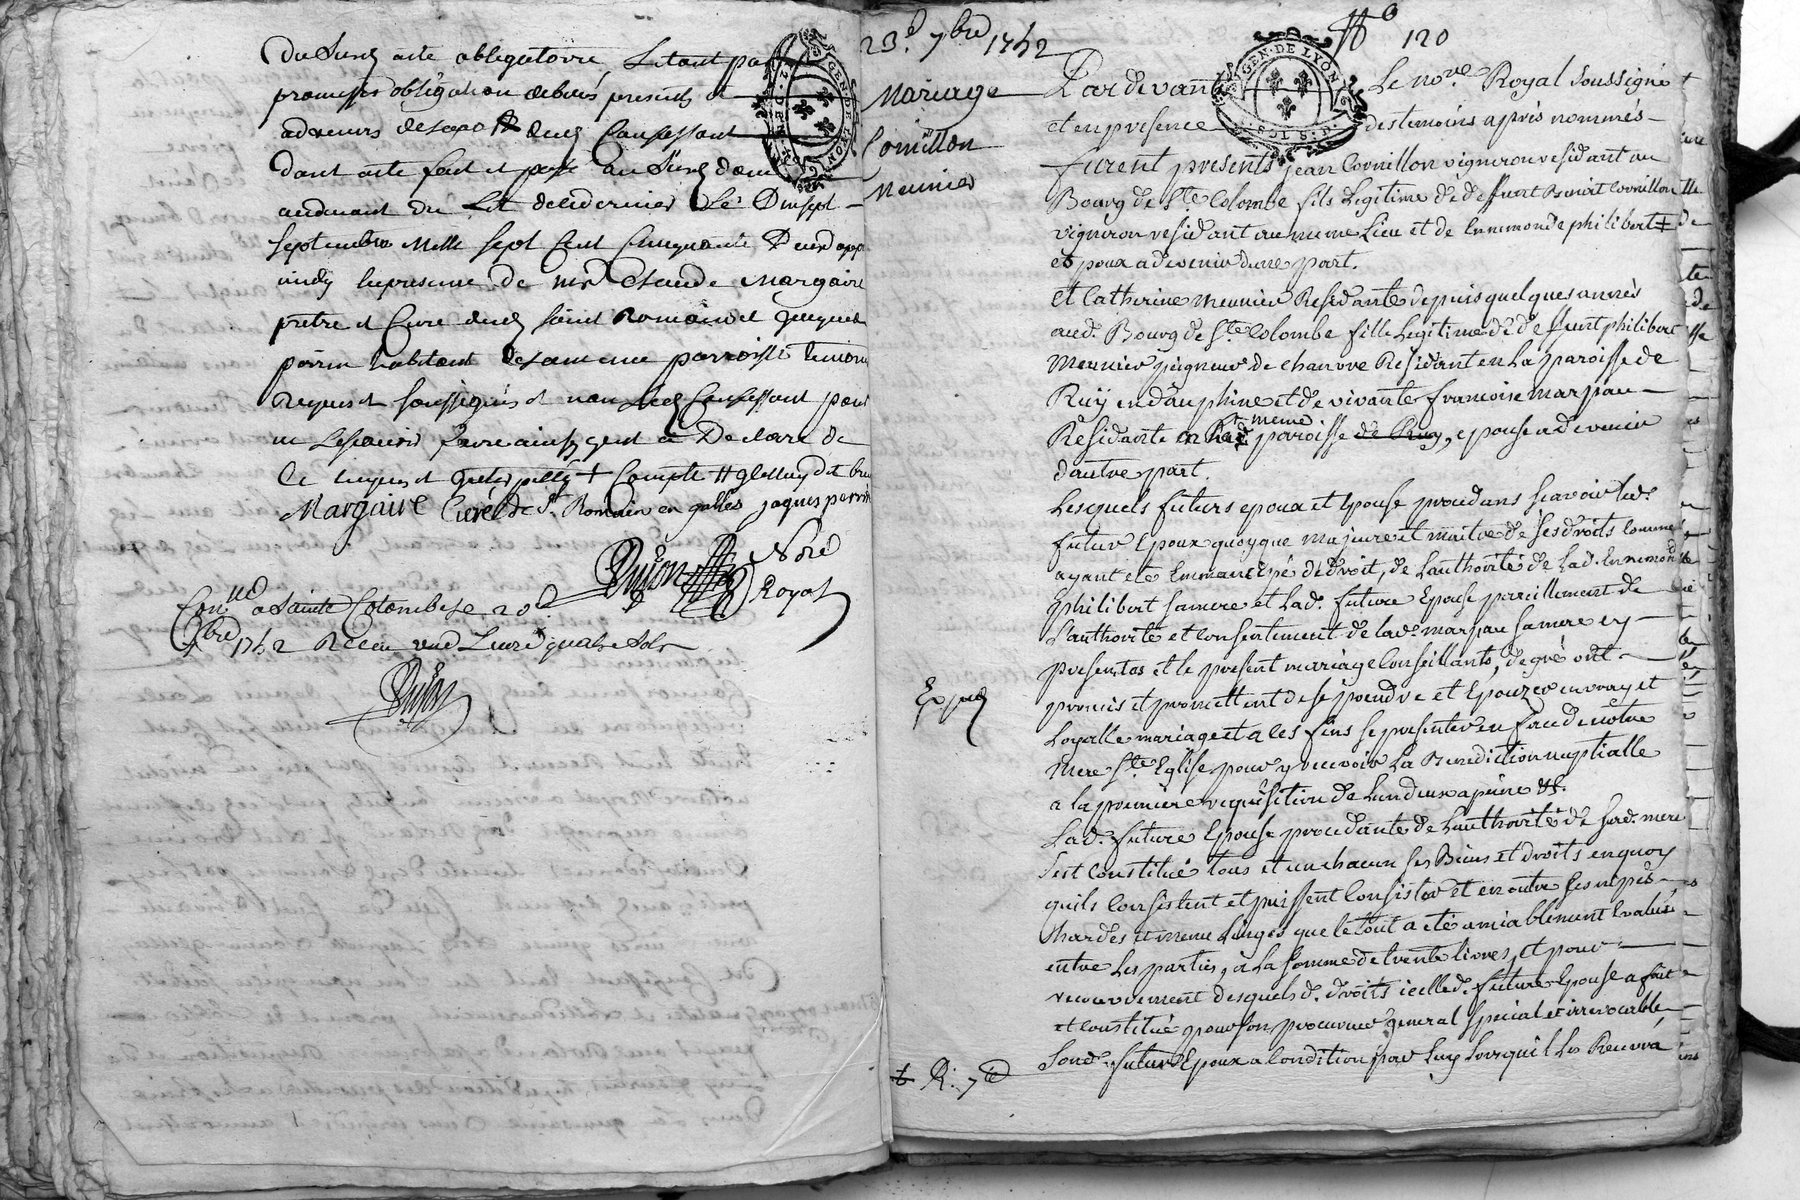 du Susd acte obligatoire Lstant par
promesses obligation de biens presents et
advenirs desapo dud Confessant
dont acte fait et passé au Susd
audevant du Lit dud dernier Le Dixsept
septembre Mille sept Cent Cinquante Deux
en presence de mre Claude Margaire
pretre et Curé dud saint Romain et Jacques
perrin habitant de sa meme parroisse temoins
requis et soussignés et non Led Confessant pour
ne Le scavoir faire ainsy quil a Declaré de
Ce enquis et
Margaire Curé de St Romain en galles jaques perrin
Dujon Nore
Royal
Conlle a Sainte Colombe Le 20e
7bre 1752 Receu une Livre quatre Sols
Dujon
23e 7bre 1752
Mariage
Cornillon
Meunier
Expedé
R. 7te
No 120
GEN. DE LYON
SOLS
Pardevant Le nore Royal Soussigné
et en presence des temoins aprés nommés
furent presents jean Cornillon vigneron residant au
Bourg de Ste Colombe fils Legitime de deffunt Benoit Cornillon
vigneron residant au meme Lieu et de Ennemonde philibert
epoux a devenir d'une part.
Et Catherine meunier Residante depuis quelques années
aud. Bourg de Ste Colombe fille Legitime de deffunt philibert
Meunier peigneur de chanvre Residant en La paroisse de
Ruÿ en dauphiné et de vivante francoise marpau
Residante en lad meme paroisse de Ruy, epouse a devenir
d'autre part.
Lesquels futurs epoux et Epouse procedans scavoir led.
futur Epoux quoyque majeur et maitre de ses droits comme
ayant eté Emmancipé de droit, de L'authorité de Lad. Ennemonde
philibert sa mere et Lad. future Epouse pareillement de
L'authorité et consentement de lad. marpau sa mere cy
presentes et le present mariage Conseillants, de gré ont
promis et promettent de se prendre et Epouzer en vray et
Loyalle mariage et a ces fins se presenter en face de nôtre
mere Ste Eglise pour y recevoir La Benediction nuptialle
a la premiere requisition de L'un d'eux a peine &c.
Lad. future Epouse procedante de L'authorité de Sad. mere
s'est Constitué tous et un chacun ses Biens et droits en quoy
quils Consistent et puissent Consister et en outre ses nipes
hardes et menu Linges que le tout a eté amiablement Evalué
entre Les parties, a La somme de trente livres, et pour
recouvrement desquels d. droits icelle d. future Epouse a fait
et constitué pour son procureur general special et irrevocable
Sond. futur Epoux a Condition par Luy Lorsquil Les Recevra